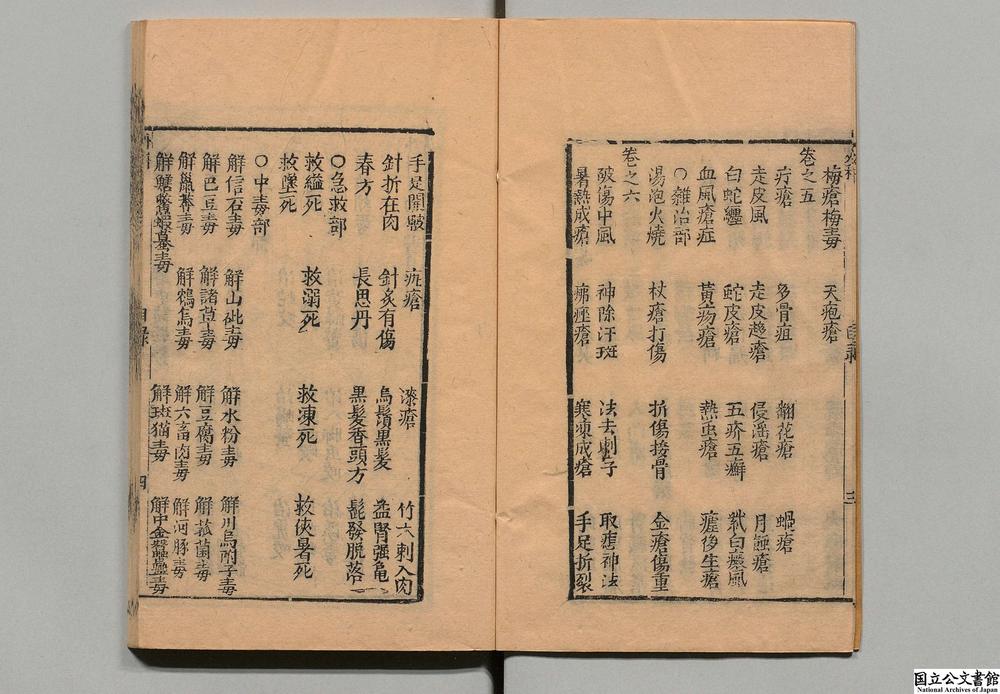 梅瘡梅毒 天疱瘡
卷之五
疔瘡 多骨疽 翻花瘡 蝸瘡
走皮風 走皮趍瘡 侵滛瘡 月蝕瘡
白蛇纏 蛇皮瘡 五疥五癬 白癜風
血風瘡症 黃瘑瘡 熱虫瘡 生瘡
○雜治部
湯泡火燒 杖瘡打傷 折傷接骨 金瘡傷重
卷之六
破傷中風 神除汗斑 法去刺子 取痣神法
暑熱成瘡 痱痤瘡火 寒凍成瘡 手足折裂
手足開皸 漆瘡 竹木刺入肉
針折在肉 針灸有傷 烏鬚黑髮 益腎强龟
春方 長思丹 黑髮香頭方 髭發脫落
○急救部
救縊死 救溺死 救凍死 救侠暑死
救墜死
○中毒部
解信石毒 解山砒毒 解水粉毒 解川烏附子毒
解巴豆毒 解諸草毒 解豆腐毒 解菰菌毒
解鼠莽毒 解鴆鳥毒 解六畜肉毒 解河豚毒
解蟾蟞蝦蟇毒 解斑猫毒 解中金蚕蠱毒
目錄
三
四
国立公文書館
National Archives of Japan